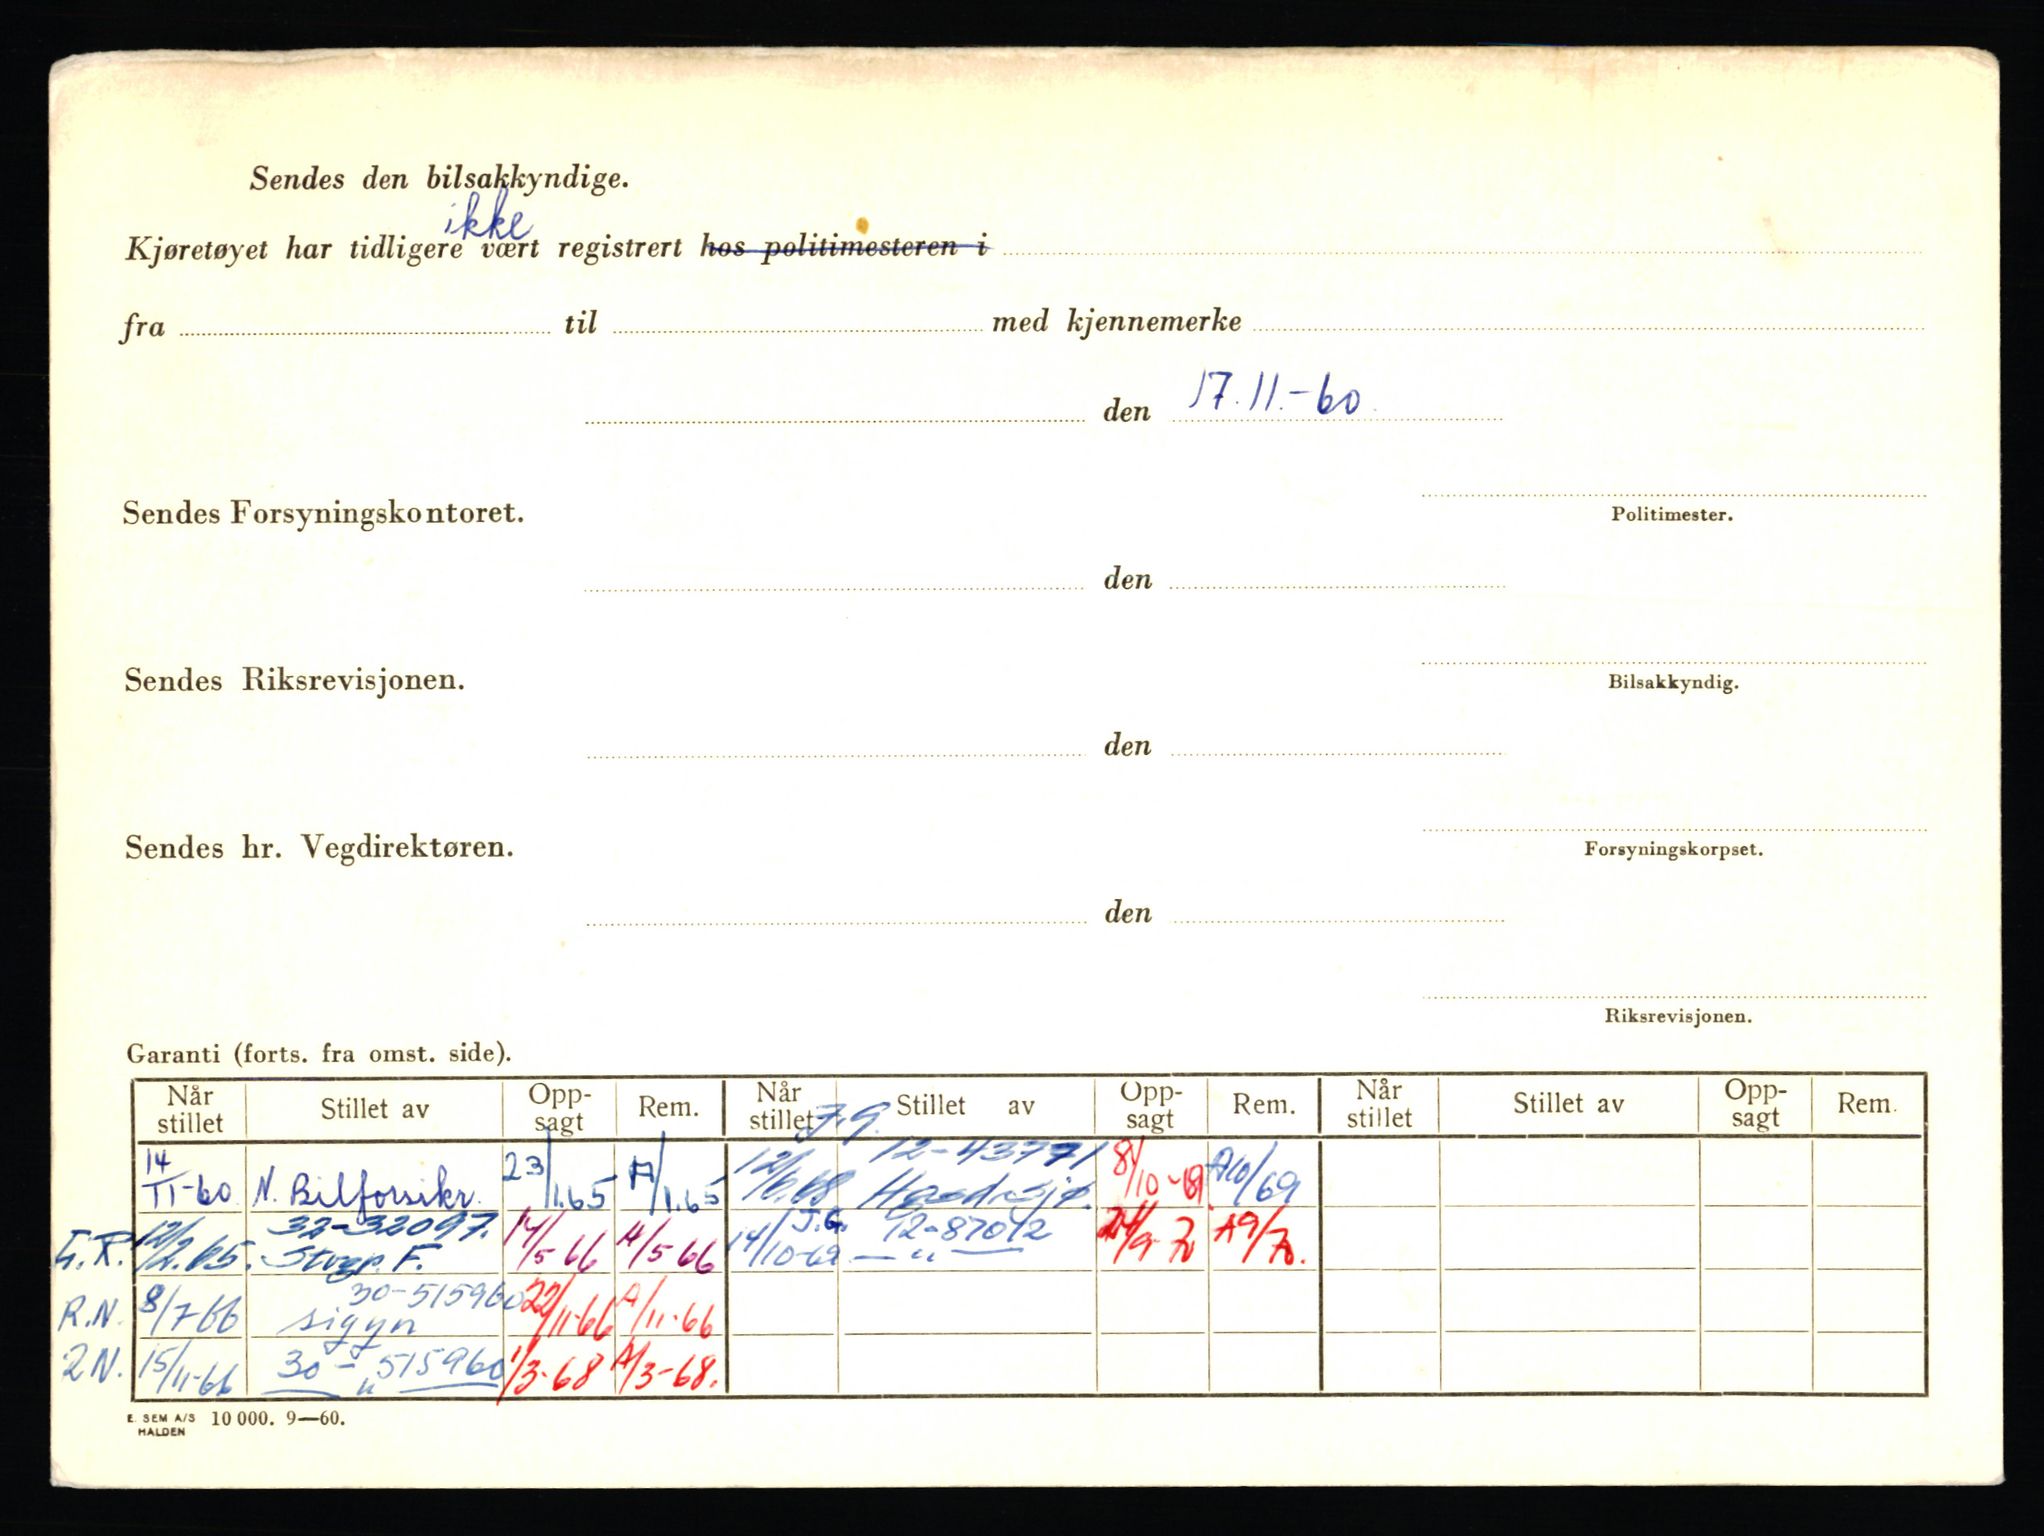 Sendes den bilsakkyndige.
ikke
Kjøretøyet har tidligere vært registrert hos politimesteren i
fra til med kjennemerke
den 17.11.-60
Sendes Forsyningskontoret.
Politimester.
den
Sendes Riksrevisjonen.
Bilsakkyndig.
den
Sendes hr. Vegdirektøren.
Forsyningskorpset.
den
Riksrevisjonen.
Garanti (forts. fra omst. side).
Når stillet Stillet av Opp-sagt Rem. Når stillet Stillet av Opp-sagt Rem. Når stillet Stillet av Opp-sagt Rem.
14/11-60 N. Bilforsikr. 23/1.65 A/1.65 12/6.68 12-43771 8/10-69 A10/69
12/2.65. 32-32097. 14/5-66 A/5-66 14/10-69 J.G. 12-87012 24/9-70 A9/70.
R.N. 8/7-66 30-515960 sigyn 22/11-66 A/11-66
R.N. 15/11-66 30-515960 — " — 1/3-68 A/3-68.
E. SEM A/S 10 000. 9—60.
HALDEN